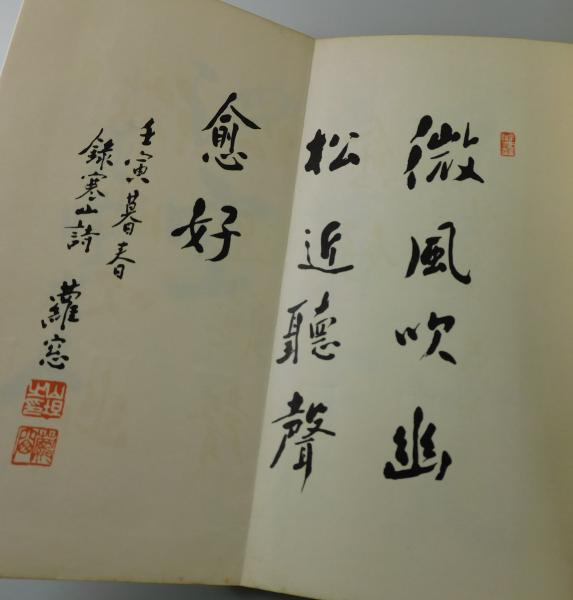 微風吹幽
松近聽聲
愈好
壬寅暮春
錄寒山詩
蘿窓